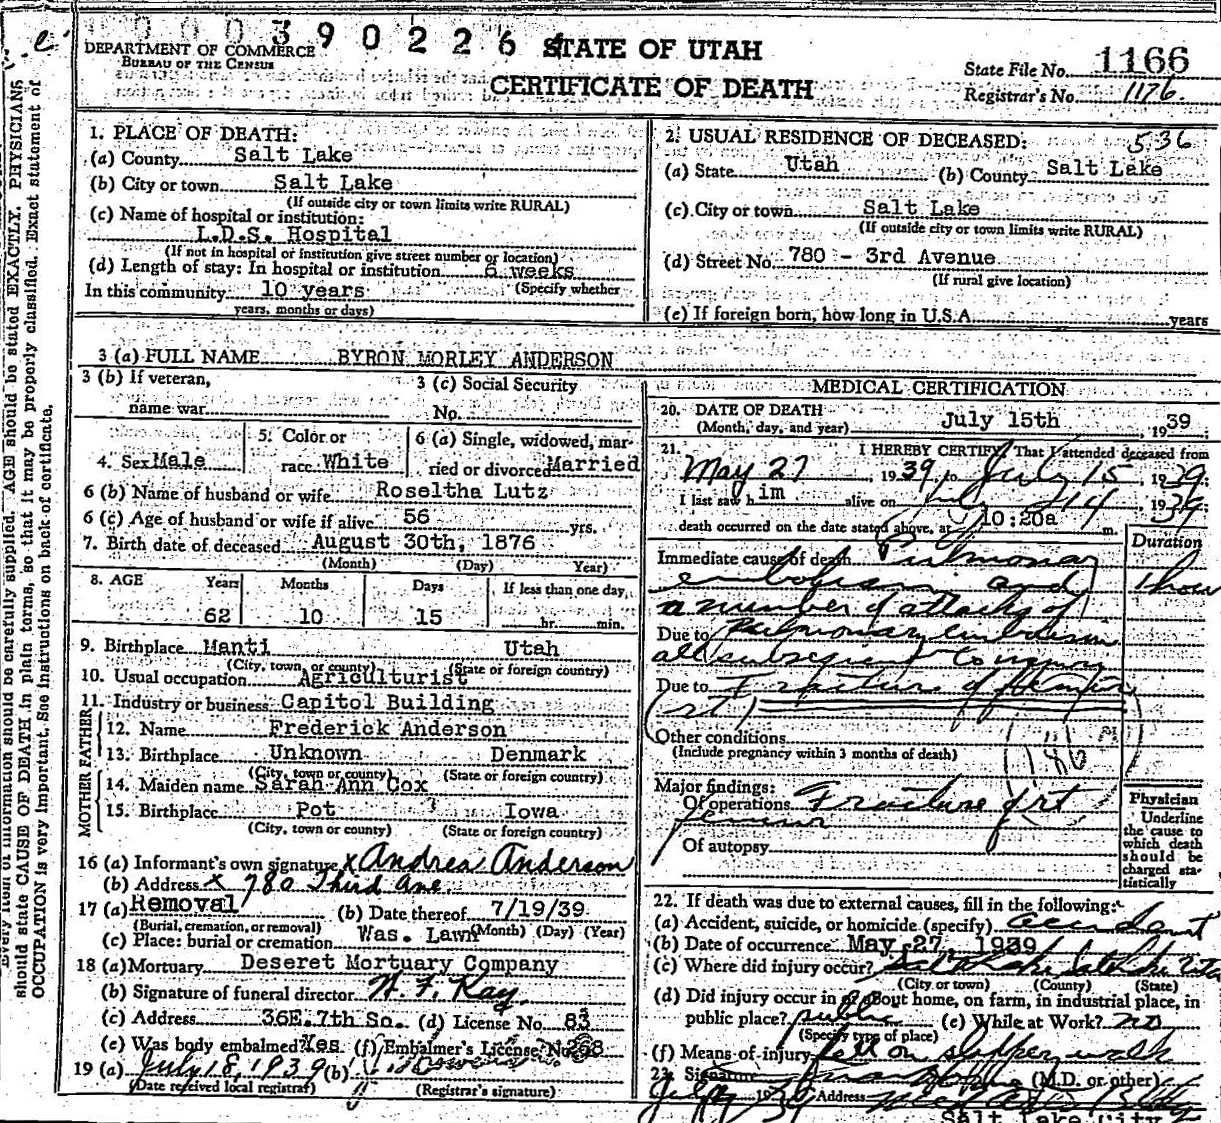 000390226
DEPARTMENT OF COMMERCE
BUREAU OF THE CENSUS
STATE OF UTAH
CERTIFICATE OF DEATH
State File No. 1166
Registrar's No. 1176.
1. PLACE OF DEATH:
(a) County Salt Lake
(b) City or town Salt Lake
(If outside city or town limits write RURAL)
(c) Name of hospital or institution:
L.D.S. Hospital
(If not in hospital or institution give street number or location)
(d) Length of stay: In hospital or institution 6 weeks
In this community 10 years (Specify whether
years, months or days)
2. USUAL RESIDENCE OF DECEASED: 536
(a) State Utah (b) County Salt Lake
(c) City or town Salt Lake
(If outside city or town limits write RURAL)
(d) Street No. 780 - 3rd Avenue
(If rural give location)
(e) If foreign born, how long in U.S.A. years
3 (a) FULL NAME BYRON MORLEY ANDERSON
3 (b) If veteran,
name war
3 (c) Social Security
No.
4. Sex Male
5. Color or
race White
6 (a) Single, widowed, mar-
ried or divorced Married
6 (b) Name of husband or wife Roseltha Lutz
6 (c) Age of husband or wife if alive 56 yrs.
7. Birth date of deceased August 30th, 1876
(Month) (Day) Year)
8. AGE Years Months Days If less than one day,
62 10 15 hr. min.
9. Birthplace Manti Utah
(City, town, or county) (State or foreign country)
10. Usual occupation Agriculturist
11. Industry or business Capitol Building
FATHER
12. Name Frederick Anderson
13. Birthplace Unknown Denmark
(City, town or county) (State or foreign country)
MOTHER
14. Maiden name Sarah Ann Cox
15. Birthplace Pot Iowa
(City, town or county) (State or foreign country)
16 (a) Informant's own signature x Andrea Anderson
(b) Address x 780 Third Ave.
17 (a) Removal (b) Date thereof 7/19/39
(Burial, cremation, or removal) (Month) (Day) (Year)
(c) Place: burial or cremation Was. Lawn
18 (a) Mortuary Deseret Mortuary Company
(b) Signature of funeral director
(c) Address 36E. 7th So. (d) License No. 83
(e) Was body embalmed? Yes (f) Embalmer's License No. 268
19 (a) July 18, 1939 (b)
(Date received local registrar) (Registrar's signature)
MEDICAL CERTIFICATION
20. DATE OF DEATH
(Month, day, and year) July 15th, 1939
21. I HEREBY CERTIFY, That I attended deceased from
May 27, 1939 to July 15 1939;
I last saw him alive on July 14, 1939;
death occurred on the date stated above, at 10:20a m.
Duration
Immediate cause of death Pulmonary
embolism and 1 hour
a number of attacks of
Due to Pulmonary embolism
all subsequent to injury
Due to Fracture of femur
(rt)
Other conditions
(Include pregnancy within 3 months of death)
186
Major findings:
Of operations Fracture of rt
femur
Of autopsy
Physician
Underline
the cause to
which death
should be
charged sta-
tistically
22. If death was due to external causes, fill in the following:
(a) Accident, suicide, or homicide (specify) accident
(b) Date of occurrence May 27, 1939
(c) Where did injury occur? Salt Lake Salt Lake Utah
(City or town) (County) (State)
(d) Did injury occur in or about home, on farm, in industrial place, in
public place? public (e) While at Work? no
(Specify type of place)
(f) Means of injury fell on slippery walk
23. Signature (M.D. or other)
1939 Address
Salt Lake City
Every item of information should be carefully supplied. AGE should be stated EXACTLY. PHYSICIANS
should state CAUSE OF DEATH in plain terms, so that it may be properly classified. Exact statement of
OCCUPATION is very important. See instructions on back of certificate.